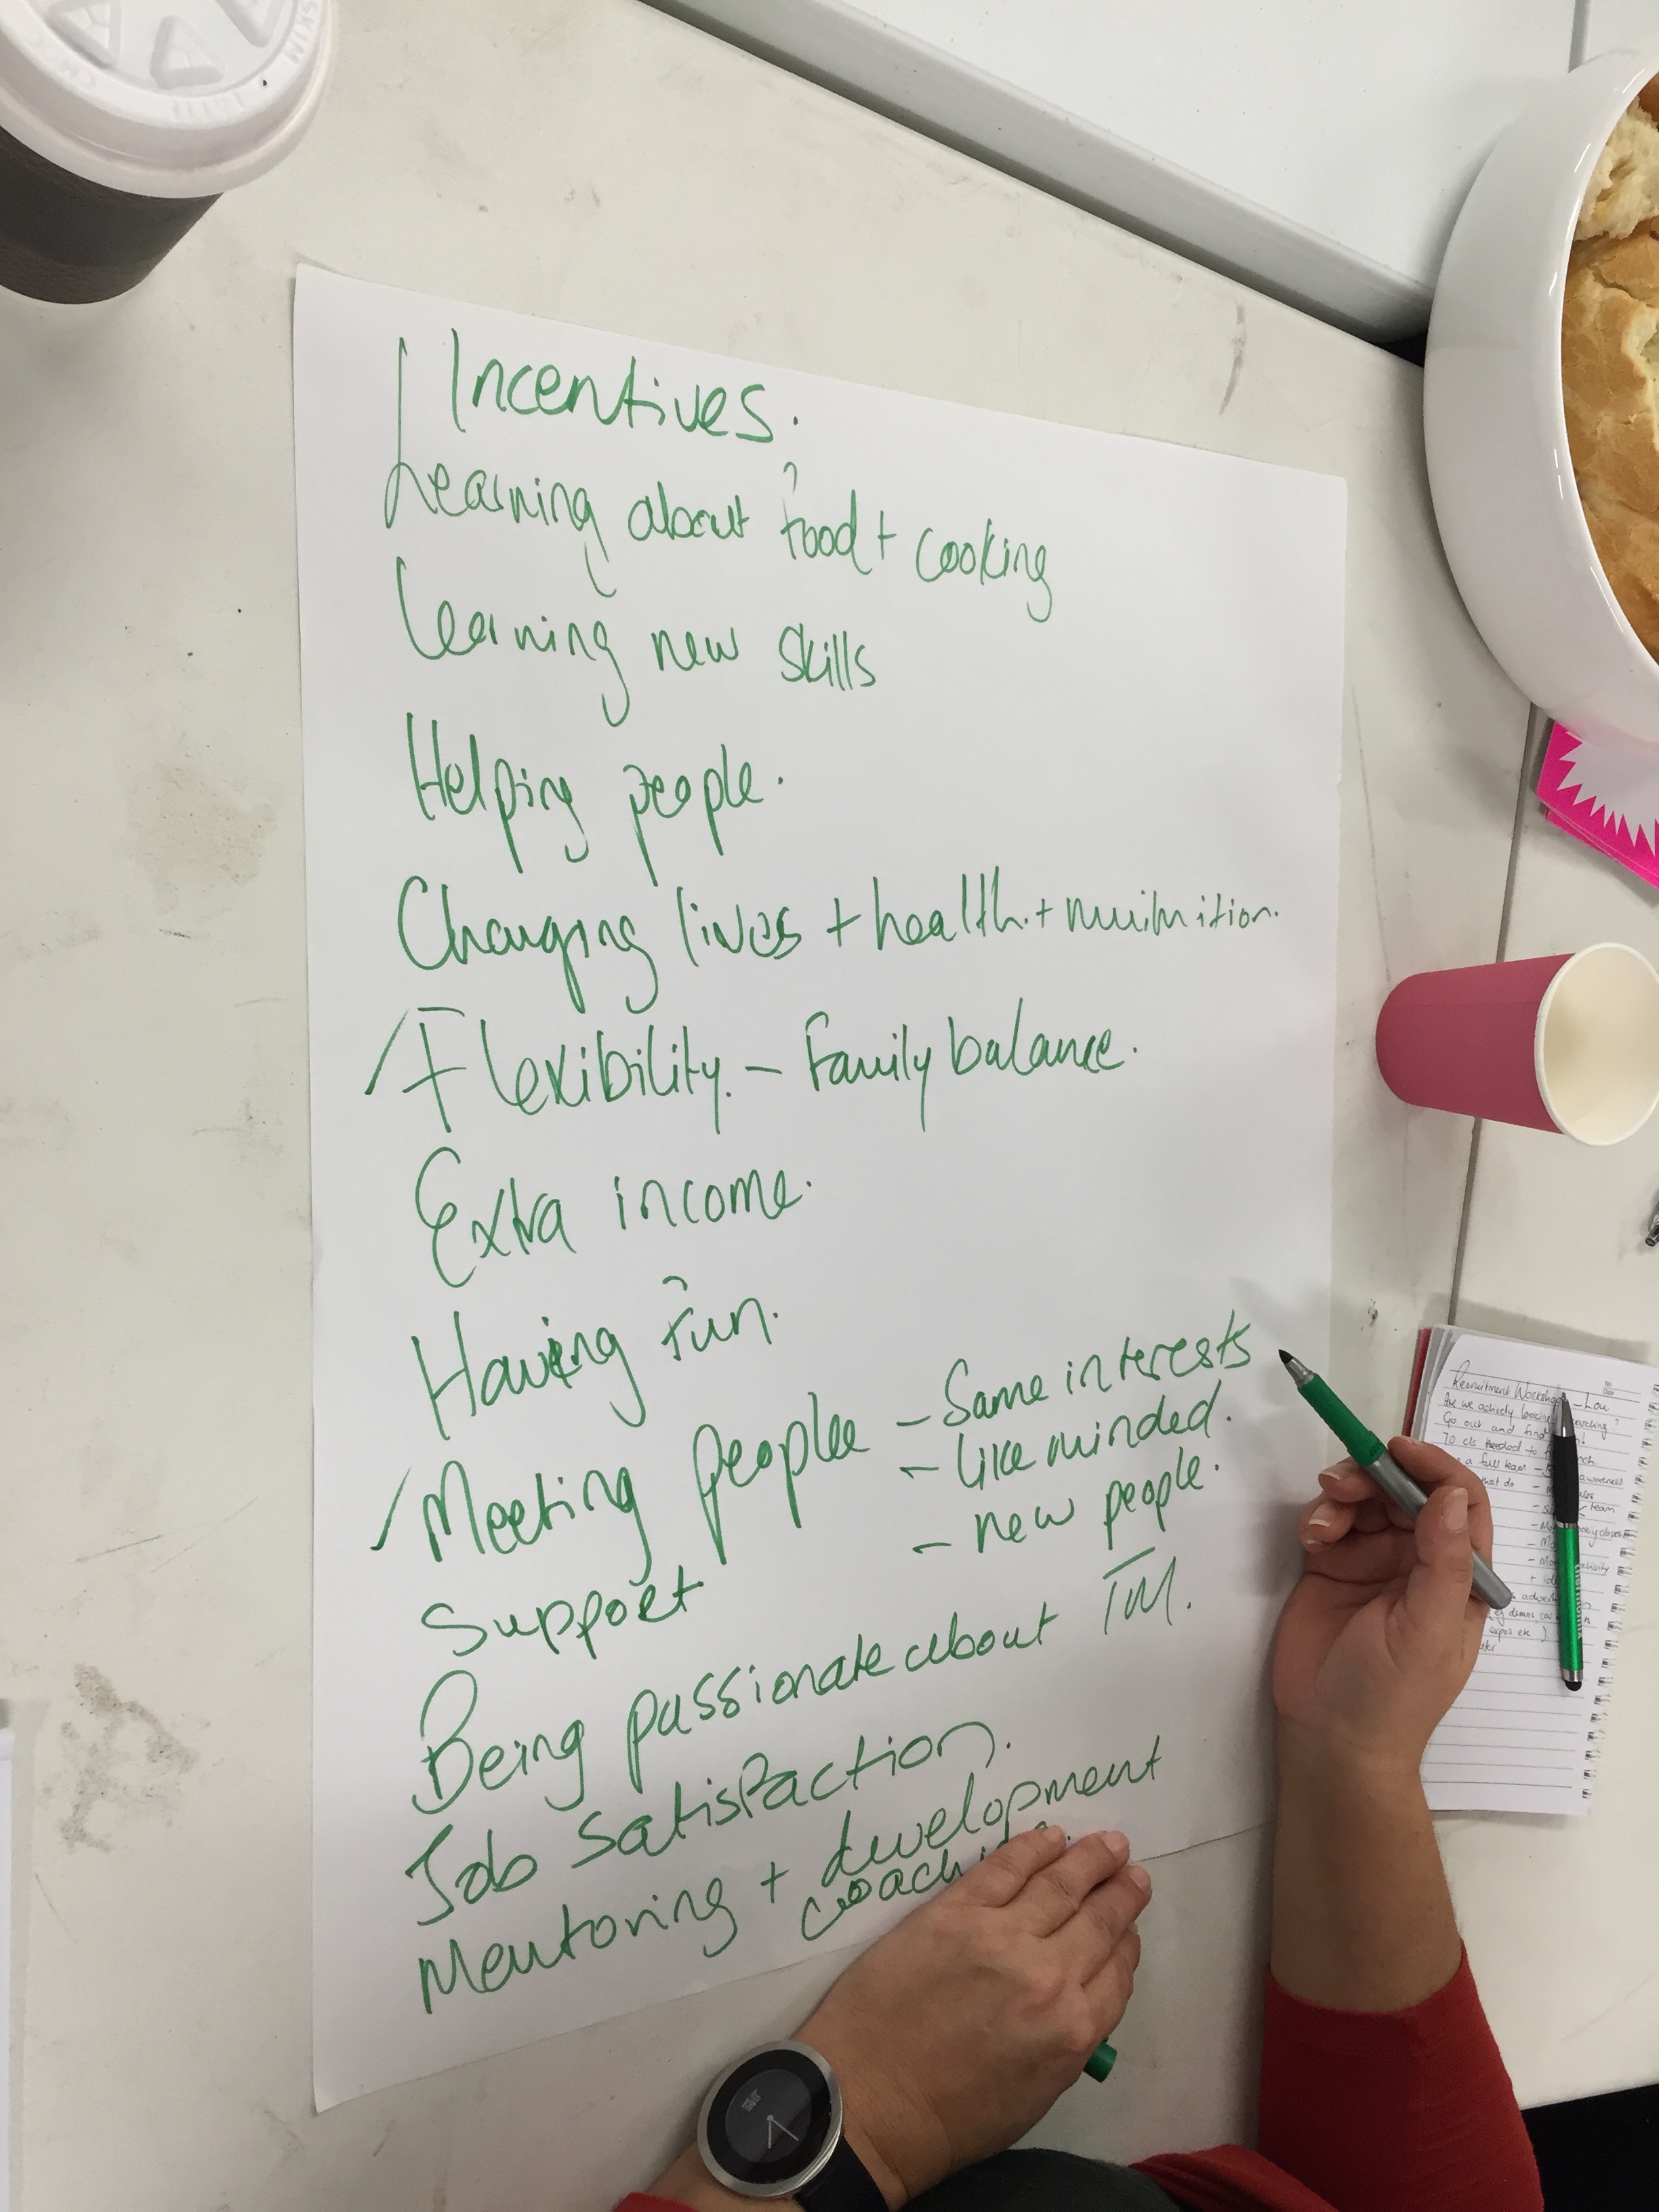 Incentives.
Learning about food + cooking
Learning new skills
Helping people.
Changing lives + health. + nuitnition.
Flexibility. - Family balance.
Extra income.
Having fun.
Meeting people - Same interests
- like minded.
- new people.
Support
Being passionate about TM.
Job Satisfaction.
Mentoring + development
Recruitment Workshop - Lou
Are we actively
Go out and find
70 cls needed to
a full team
that do
awareness
team
expos etc)
thermomix